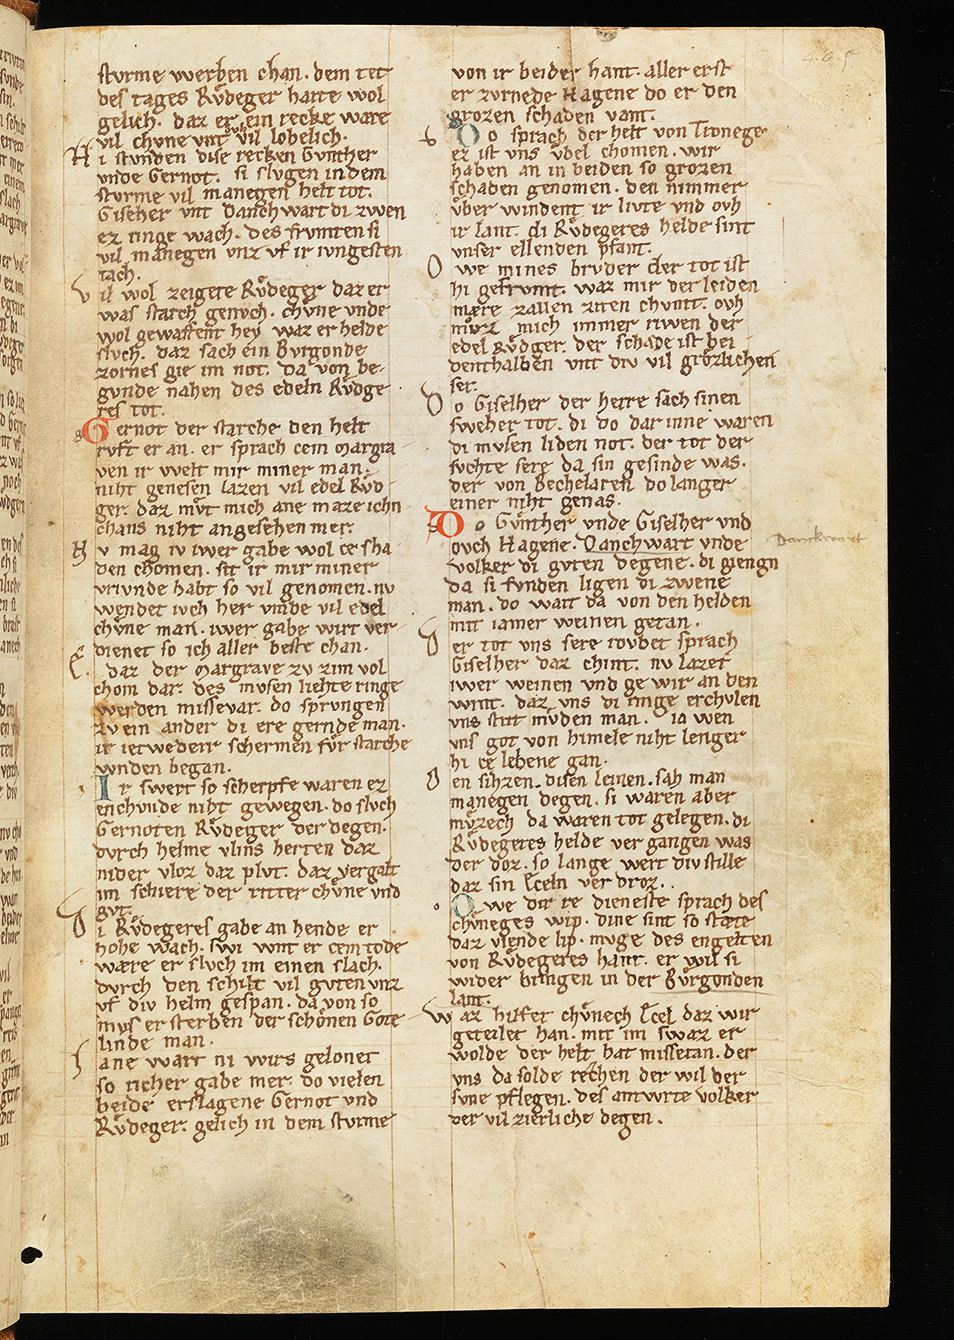 sturme werben chan. dem tet
des tages Růdeger harte wol
gelich. daz er ein recke ware
vil chvne vnt vil lobelich.
Hi stunden dise recken Gunther
vnde Gernot. si slugen in dem
sturme vil manegen helt tot.
Giselher vnt Danchwart di zwen
ez ringe wach. des frumten si
vil manegen vnz vf ir iungesten
tach.
Vil wol zeigete Růdeger daz er
was starch genuch. chůne vnde
wol gewaffent hey waz er helde
sluch. daz sach ein Burgonde
zornes gie im not. da von be-
gunde nahen des edeln Růdge
res tot.
Gernot der starche den helt
ruft er an. er sprach cem Margra
ven ir welt mir miner man
niht genesen lazen vil edel Růd
ger. daz můt mich ane maze ichn
chans niht angesehen mer.
Nu mag iv iwer gabe wol ce sha
den chomen. sit ir mir miner
vriunde habt so vil genomen. nv
wendet ivch her vmbe vil edel
chůne man. iwer gabe wirt ver
dienet so ich aller beste chan.
E daz der Margrave zv zim vol
chom dar. des musen liehte ringe
werden missevar. do sprungen
zv ein ander di ere gernde man.
ir ietweder schermen fůr starche
wnden began.
Ir swert so scherpfe waren ez
enchunde niht gewegen. do sluch
Gernoten Růdeger der degen.
durch helme vlins herten daz
nider vloz daz plut. daz vergalt
im schiere der ritter chůne vnd
gut.
Di Růdegeres gabe an hende er
hohe wach. swi wnt er cem tode
wære er sluch im einen slach.
durch den schilt vil guten vnz
vf div helm gespan. da von so
mus er sterben der schonen Gote
linde man.
Iane wart ni wirs gelonet
so richer gabe mer. do vielen
beide erslagene Gernot vnd
Růdeger. gelich in dem sturme
von ir beider hant. aller erst
er zurnede Hagene do er den
grozen schaden vant.
Do sprach der helt von Tronege
ez ist vns ubel chomen. wir
haben an in beiden so grozen
schaden genomen. den nimmer
ůber windent ir liute vnd ovh
ir lant. di Růdegeres helde sint
vnser ellenden pfant.
Owe mines bruder der tot ist
hi gefrumt. waz mir der leiden
mære zallen ziten chumt. ovh
můz mich immer riwen der
edel Růdger. der schade ist bei
denthalben vnt div vil grozlichen
ser.
Do Giselher der herre sach sinen
sweher tot. di do dar inne waren
di musen liden not. der tot der
suchte sere da sin gesinde was.
der von Bechelaren do langer
einer niht genas.
Do Gůnther vnde Giselher vnd
ouch Hagene. Danchwart vnde
Volker di guten degene. di giengn
da si funden ligen di zwene
man. do wart da von den helden
mit iamer weinen getan.
Der tot vns sere roubet sprach
Giselher daz chint. nu lazet
iwer weinen vnd ge wir an den
wint. daz vns di ringe erchulen
vns strit můden man. ia wen
vns got von himele niht lenger
hi ce lebene gan.
Den sitzen. disen leinen. sah man
manegen degen. si waren aber
můzech da waren tot gelegen. di
Růdegeres helde vergangen was
der doz. so lange wert div stille
daz sin Eceln verdroz.
Owe dir re dieneste sprach des
chůneges wip. dine sint so stæte
daz viende lip. muge des engelten
von Růdegeres hant. er wil si
wider bringen in der Bůrgonden
lant.
Waz hilfet chůnech Ecel daz wir
geteilet han. mit im swaz er
wolde der helt hat missetan. der
vns da solde rechen der wil der
sune pflegen. des antwrte Volker
der vil zierliche degen.
Danckwart